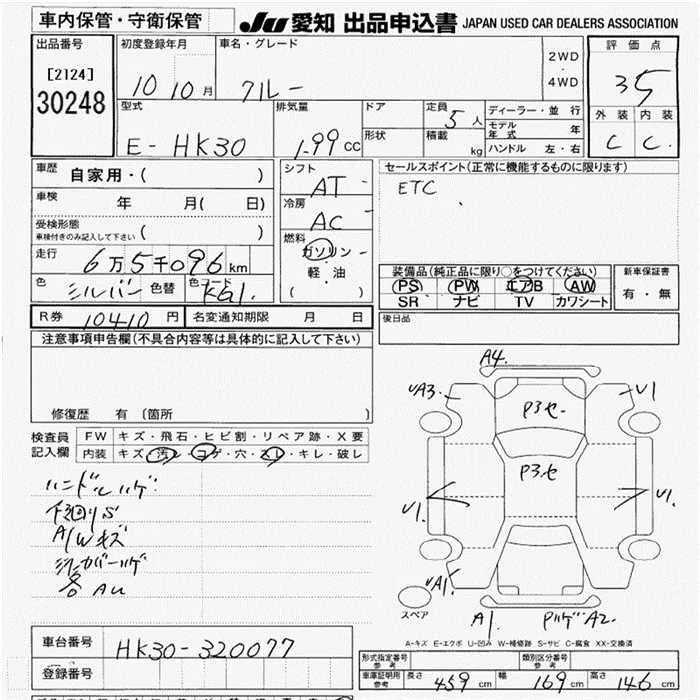 車内保管・守衛保管
JU 愛知 出品申込書 JAPAN USED CAR DEALERS ASSOCIATION
出品番号
[2124]
30248
初度登録年月
10 10月
車名・グレード
クルー
2WD
・
4WD
評価点
3.5
型式
E-HK30
排気量
1.99 CC
ドア
形状
定員
5人
積載
kg
ディーラー・並行
モデル年式 年
ハンドル 左・右
外装 内装
C C
車歴
自家用・( )
車検
年 月( 日)
受検形態
車検付きのみ記入して下さい ( )
走行
6万5千096km
色
シルバー
色替
色コード
KG1
シフト
AT
冷房
AC
燃料
ガソリン
軽・油
( )
セールスポイント(正常に機能するものに限ります)
ETC
装備品(純正品に限り○をつけてください)
PS PW エアB AW
SR ナビ TV カワシート
新車保証書
有・無
R券 10410円
名変通知期限 月 日
後日品
注意事項申告欄(不具合内容等は具体的に記入して下さい)
修復歴 有〔箇所 〕
検査員
記入欄
FW キズ・飛石・ヒビ割・リペア跡・X要
内装 キズ・汚レ・コゲ・穴・スレ・キレ・破レ
ハンドルハゲ
下回りS
A/Wキズ
各AU
A4
UA3
U1
P3セ
P3セ
U1
U1
UA1
スペア
A1
PハゲA2
A-キズ E-エクボ U-凹み W-補修跡 S-サビ C-腐食 XX-交換済
車台番号
HK30-320077
登録番号
形式指定番号
参考
類別区分番号
参考
車庫証明用
参考
長さ 459cm 幅 169cm 高さ 146cm